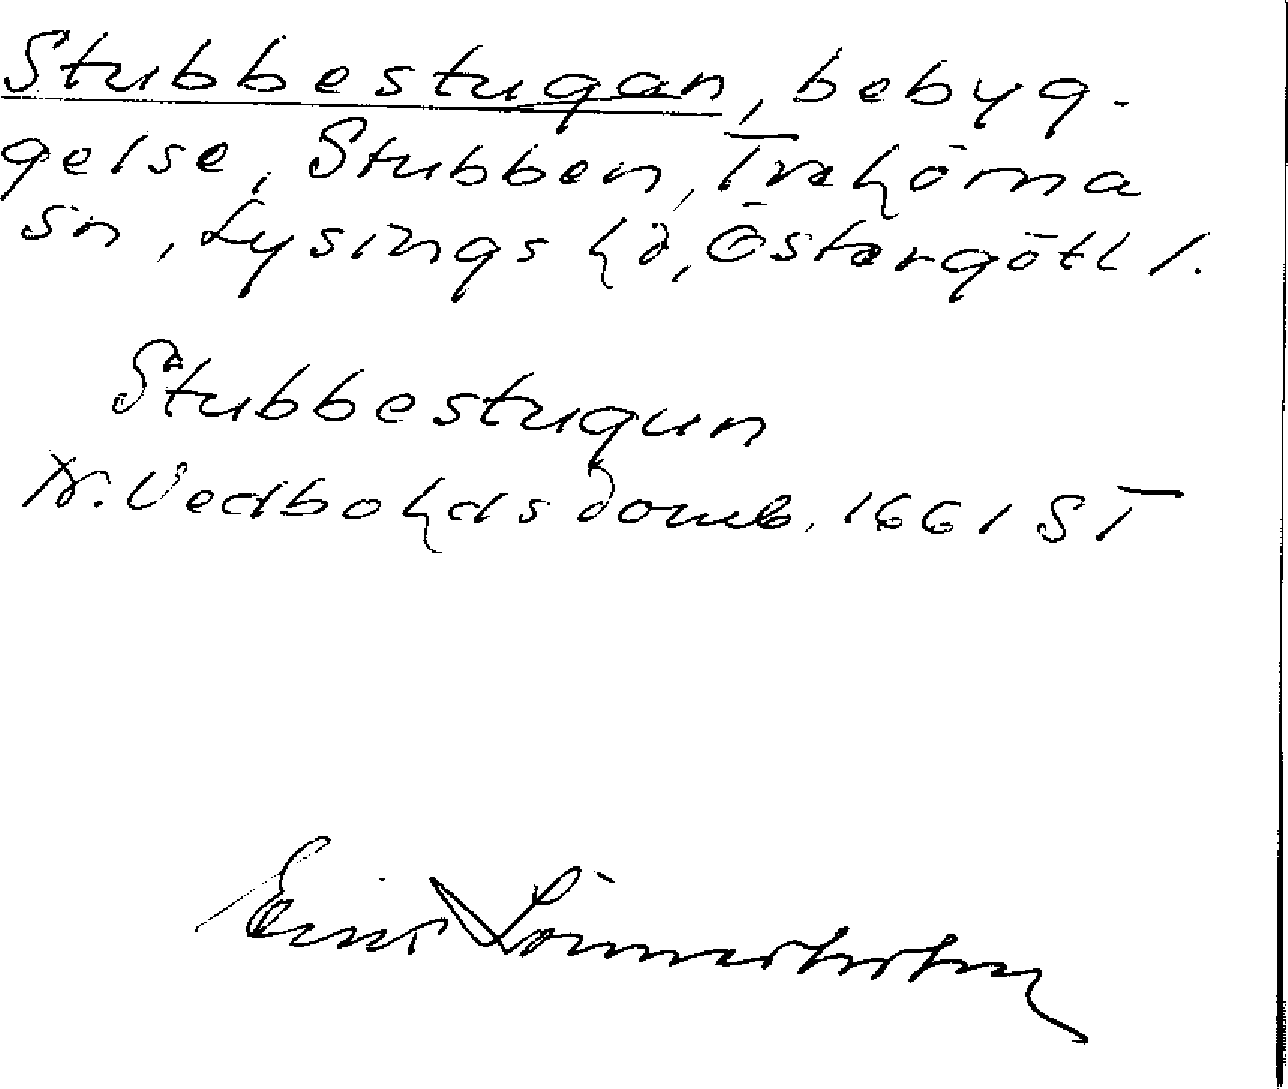 Stubbestugan, bebyg-
gelse, Stubben, Trehörna
sn, Lysings hd, Östergötl l.
Stubbestugun
N. Vedbohds domb. 1661 ST